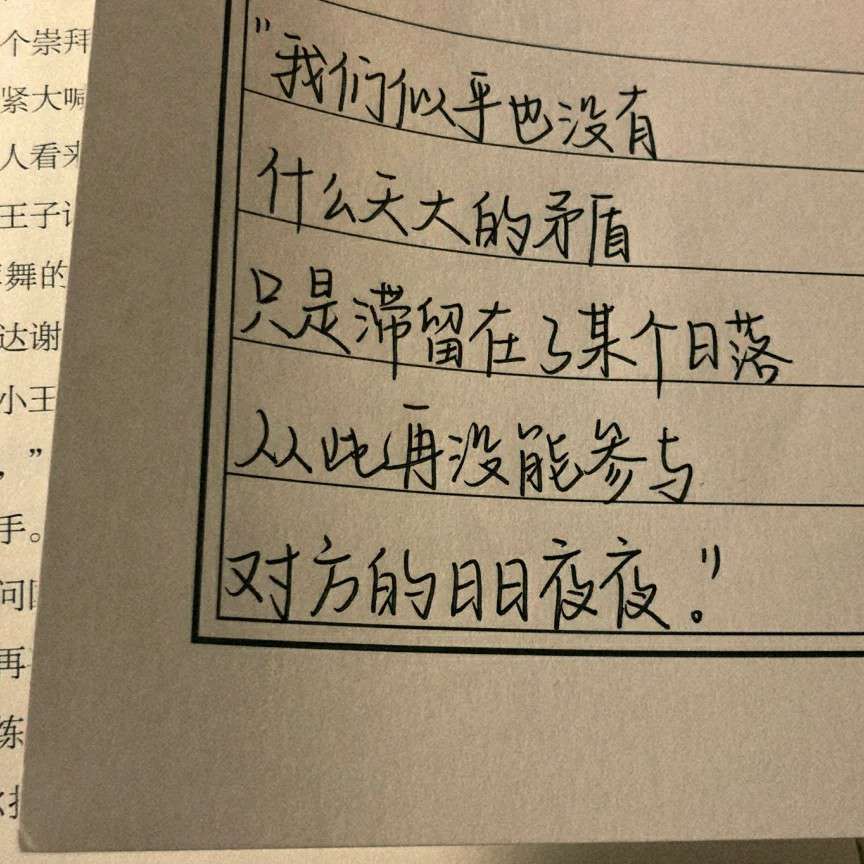 个崇拜
紧大喊
人看来
王子
舞的
达谢
小王
，”
手。
问
再
练
"我们似乎也没有
什么天大的矛盾
只是滞留在了某个日落
从此再没能参与
对方的日日夜夜。"